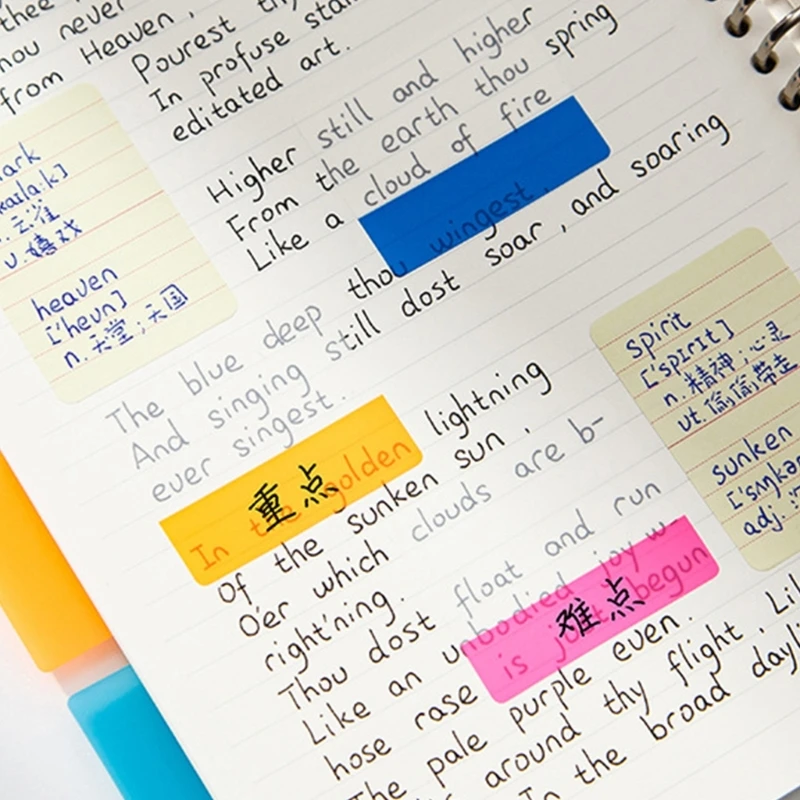 thee
hou never
from Heaven,
Pourest
In profuse
editated art.
Higher still and higher
From the earth thou spring
Like a cloud of fire
The blue deep thou wingest,
And singing still dost soar, and soaring
ever singest.
In the golden lightning
重点
Of the sunken sun,
O'er which clouds are b-
right'ning.
Thou dost float and run
Like an unbodied joy w-
hose rase is just begun
难点
The pale purple even.
around thy flight,
In the broad
ark
n.云雀
v.嬉戏
heaven
['hevn]
n.天堂;天国
spirit
['spɪrɪt]
n.精神;心灵
vt.偷偷带走
sunken
adj.